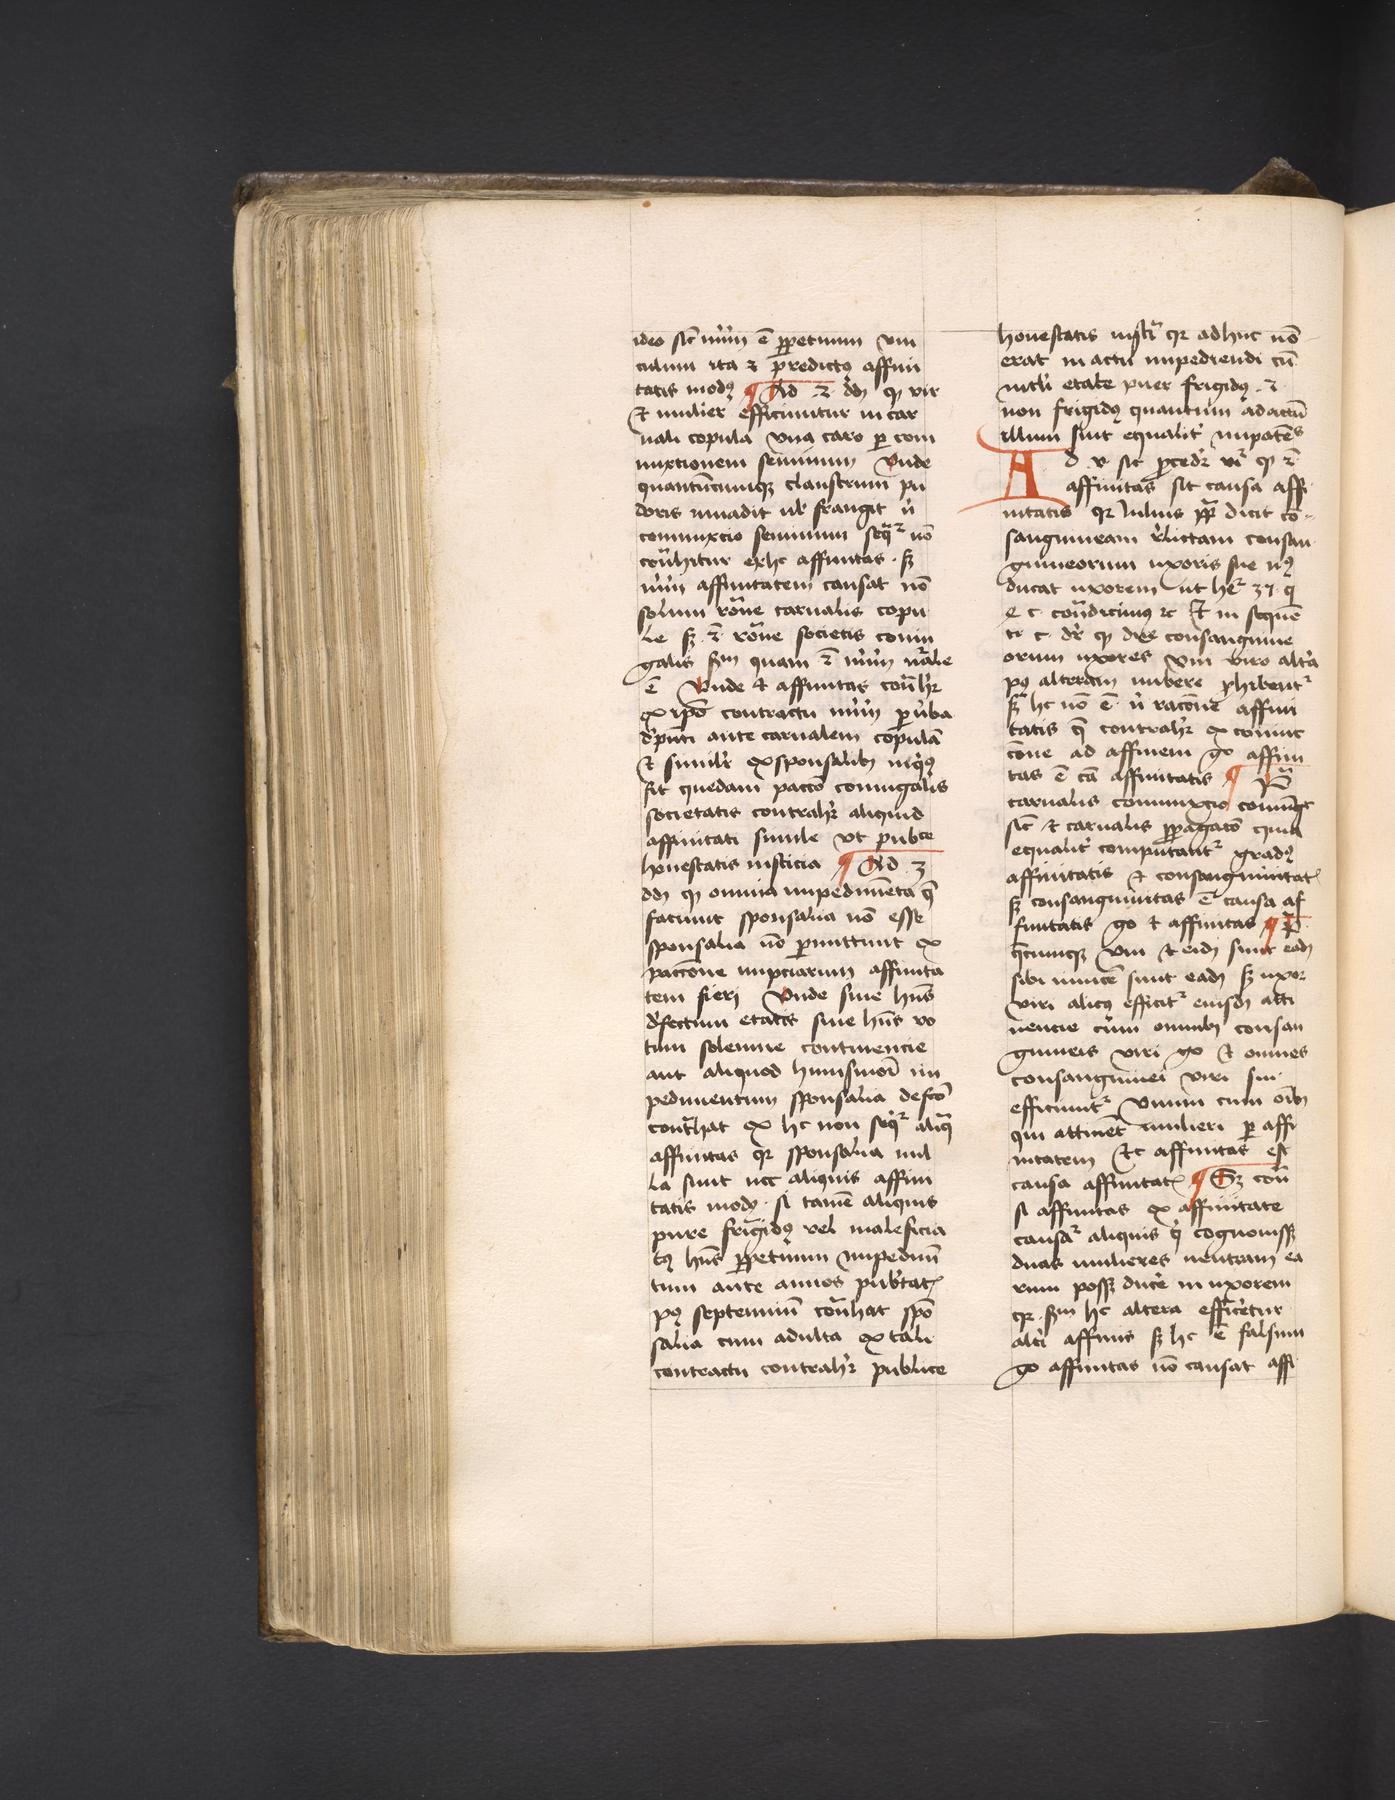 ideo sic̄ mr̄im̄ ē ꝑpetuum vin
culum ita ⁊ p̄redictꝰ affini
tatis modꝰ ¶ Ad .2. dd̄m ꝙ vir
Et mulier efficiuntur in car
nali copula vna caro ꝑ com
mixtionem seminum Vnde
quantūcumqꝫ claustrum pu
doris inuadit ul̓ frangit n̓
commixcio seminum seqᷓr nō
cōt̓hitur ex hͨ affinitas . sꝫ
mr̄im̄ affinitatem causat nō
solum rōne carnalis copu
le sꝫ .ē. rōne societis coniu
galis scd̄m quam ē mr̄im̄ nr̄ale
ē Vnde et affinitas cōt̓hr̄
ex ip̄o contractu mr̄im̄ ꝑ v̓ba
d̓ pn̄ti ante carnalem copulā
Et simil̓r ex sponsalibꝫ in qͥbꝰ
fit quedam paccō coniugalis
societatis contrahr̄ aliquid
affinitati simile vt publice
honestatis iusticia ¶ Ad 3
dd̄m ꝙ omnia impedimēta q̄
faciunt sponsalia nō esse
sponsalia nō ꝑmittunt ex
paccōne nupciarum affinita
tem fieri Vnde siue hn̄s
d̓fectum etatis siue hn̄s vo
tum solemne continencie
aut aliquod huiusmōi im
pedimentum sponsalia de fcō
cōt̓hat ex hͨ non seqͥr aliqᷓ
affinitas qꝛ sponsalia nul
la sunt nec aliquis affini
tatis modꝰ . si tamē aliquis
pure frigidꝰ vel maleficia
tꝰ hn̄s ꝑpetuum impedimē
tum ante annos pub̓tatꝭ
pꝰ septennium cōt̓hat spō
salia cum adulta ex tali
contractu contrahr̄ publice
honestatis iusticͣ qꝛ adhuc nō
erat in actu impediendi cū
in tali etate puer frigidꝰ . et
non frigidꝰ quantum ad actū
illum sint equalit̓ impotēs
Ad v sic ꝓcedr̄ vr̄ ꝙ ē
affinitas sit causa affi
nitatis qꝛ Iulius pp̄ dicit cō
sanguineam r̓lictam consan
guineorum uxoris sue nꝰ
ducat uxorem ut hr̄ 37. q̄
Et c. cōt̓dicimꝰ ꝛc Et in sequē
ti c. dr̄ ꝙ due consanguine
orum uxores vni viro alt̓a
pꝰ alteram nubere ꝓhibentᷣ
sꝫ hͨ nō ē n̓ racōne affini
tatis q̄ contrahr̄ ex coniunc
cōne ad affinem go affini
tas ē cā affinitatis ¶ P̄
carnalis commixcio coniūgit
sic̄ et carnalis ꝓpagacō quia
equalit̓ computantᷣ gradꝰ
affinitatis Et consanguinitatꝭ
sꝫ consanguinitas ē causa af
finitatis go et affinitas ¶ P̄
q̄cumqꝫ vni et eidem sunt eadem
sibi inuicē sunt eadem sꝫ uxor
viri alicꝰ efficitᷣ eiusdem atti
nencie cum omnibꝫ consan
guineis viri go et omnes
consanguinei viri sui
efficiuntᷣ vnum cum oīb̄
qui attinēt mulieri ꝑ affi
nitatem Et sic affinitas est
causa affinitatꝭ ¶ Sꝫ contͣ
si affinitas ex affinitate
causaᷣ aliquis qͥ cognouissꝫ
duas mulieres neutram ea
rum possꝫ duc̓e in uxorem
qꝛ scd̄m hͨ altera efficeretur
alt̓i affinis sꝫ hͨ ē falsum
go affinitas nō causat affi